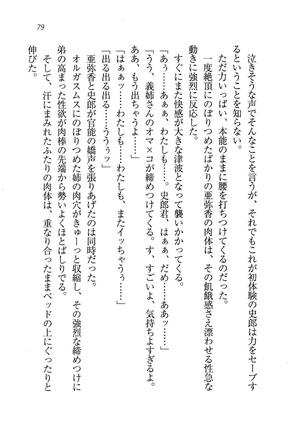 79
泣きそうな声でそんなことを言うが、それでもこれが初体験の史郎は力をセーブす
るということを知らない。
ただ力いっぱい、本能のままに腰を打ちつけてくるのだった。
一度絶頂にのぼりつめたばかりの亜弥香の肉体は、その飢餓感さえ漂わせる性急な
動きに強烈に反応した。
すぐにまた快感が大きな津波となって襲いかかってくる。
「あっ……ああぁぁ、わたしも……。史郎君、はぁぁ、だめぇぇ……」
「うう、義姉さんのオマ×コが締めつけてくる。す、すごいよ、気持ちよすぎるよ。
ああ、もう出ちゃうよ……」
「はぁぁッ……わたしも……わたしも、またイッちゃうぅ……」
「出る出るる……うううッ……」
亜弥香と史郎が官能の嬌声を張りあげたのは同時だった。
オルガスムスにのぼりつめた姉の肉穴がきゅーっと収縮し、その強烈な締めつけに
弟の高まった性欲が肉棒の先端から勢いよくほとばしりでる。
そして、汗にまみれたふたりの肉体は、重なり合ったままベッドの上にぐったりと
伸びた。